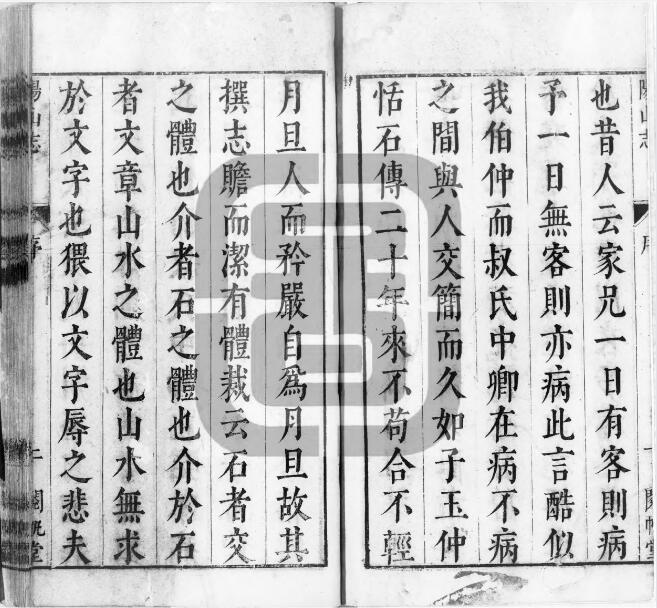 也昔人云家兄一日有客則病
予一日無客則亦病此言酷似
我伯仲而叔氏中卿在病不病
之間與人交簡而久如子玉仲
恬石傳二十年來不苟合不輕
月旦人而矜嚴自爲月旦故其
撰志贍而潔有體裁云石者交
之體也介者石之體也介於石
者文章山水之體也山水無求
於文字也猥以文字辱之悲夫
陽山志
序